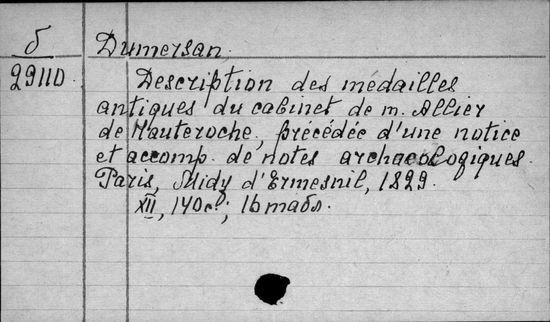 б
Dumersan.
29110
Description des médailles
antiques du cabinet de m. Allier
de Hauteroche, précédée d'une notice
et accomp. de notes archaeologiques.
Paris, Midy d'Ermesnil, 1829.
XII, 140c.; 16 табл.